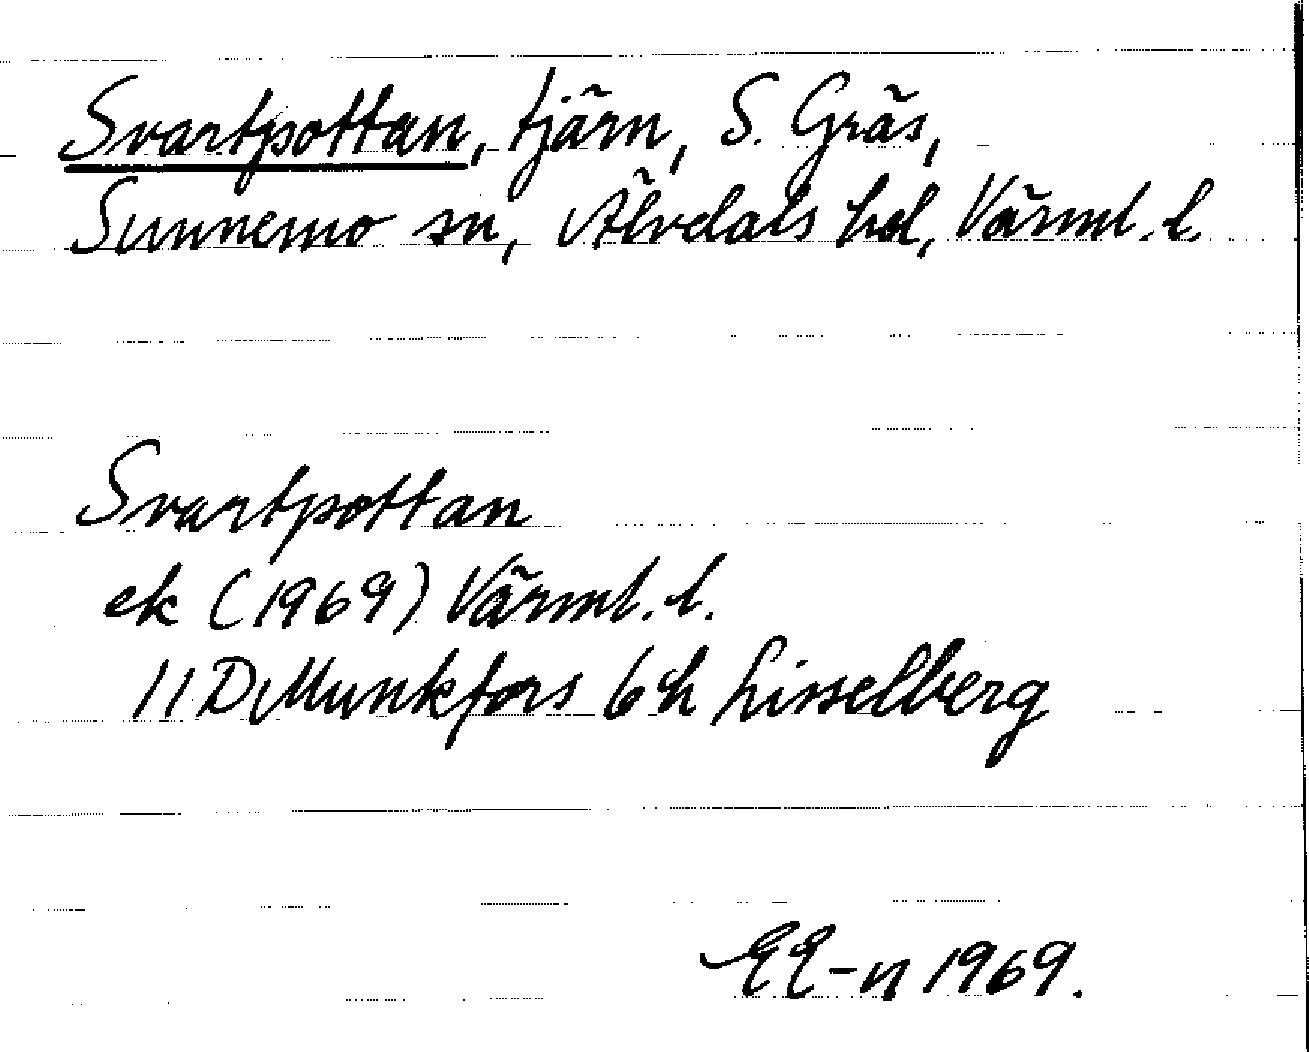 Svartpottan, tjärn, S. Gräs,
Sunnemo sn, Älvdals hd, Värml. l.
Svartpottan
ek (1969) Värml. l.
11D Munkfors 6h Lisselberg
EE-n 1969.